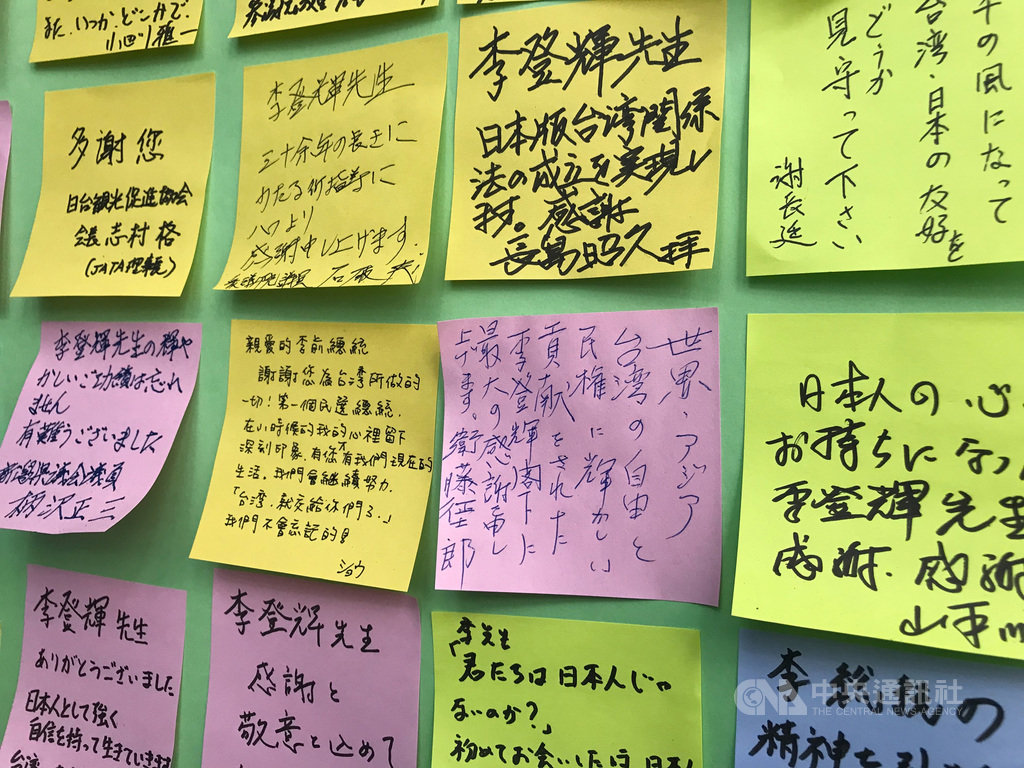 また、いつか、どこかで、
多謝您
日台観光促進協会
会長 志村 格
(JATA理事長)
李登輝先生
三十余年の長きに
わたる御指導に
心より
感謝申し上げます。
李登輝先生
日本版台湾関係
法の成立を実現し
ます。感謝
長島昭久 拝
千の風になって
台湾・日本の友好を
どうか
見守って下さい
謝長廷
李登輝先生の輝や
かしいご功績は忘れ
ません
有難うございました
新潟県議会議員
柄沢正三
親愛的李前總統
謝謝您為台湾所做的
一切!第一個民選總統,
在小時候的我的心裡留下
深刻印象,有您才有我們現在的
生活,我們會継續努力,
「台湾,就交給你們了。」
我們不會忘記的!
ショウ
世界、アジア
台湾の自由と
民権に輝かしい
貢献をされた
李登輝閣下に
最大の感謝申し
上げます。衛藤征士郎
日本人の心
お持ちになっ
李登輝先生
感謝、感謝
李登輝先生
ありがとうございました
日本人として強く
自信を持って生きていきます
台湾
李登輝先生
感謝と
敬意を込めて
李先生
「君たちは日本人じゃ
ないのか?」
初めてお会いした日、日本
李総統の
精神を引
中央通訊社
THE CENTRAL NEWS AGENCY